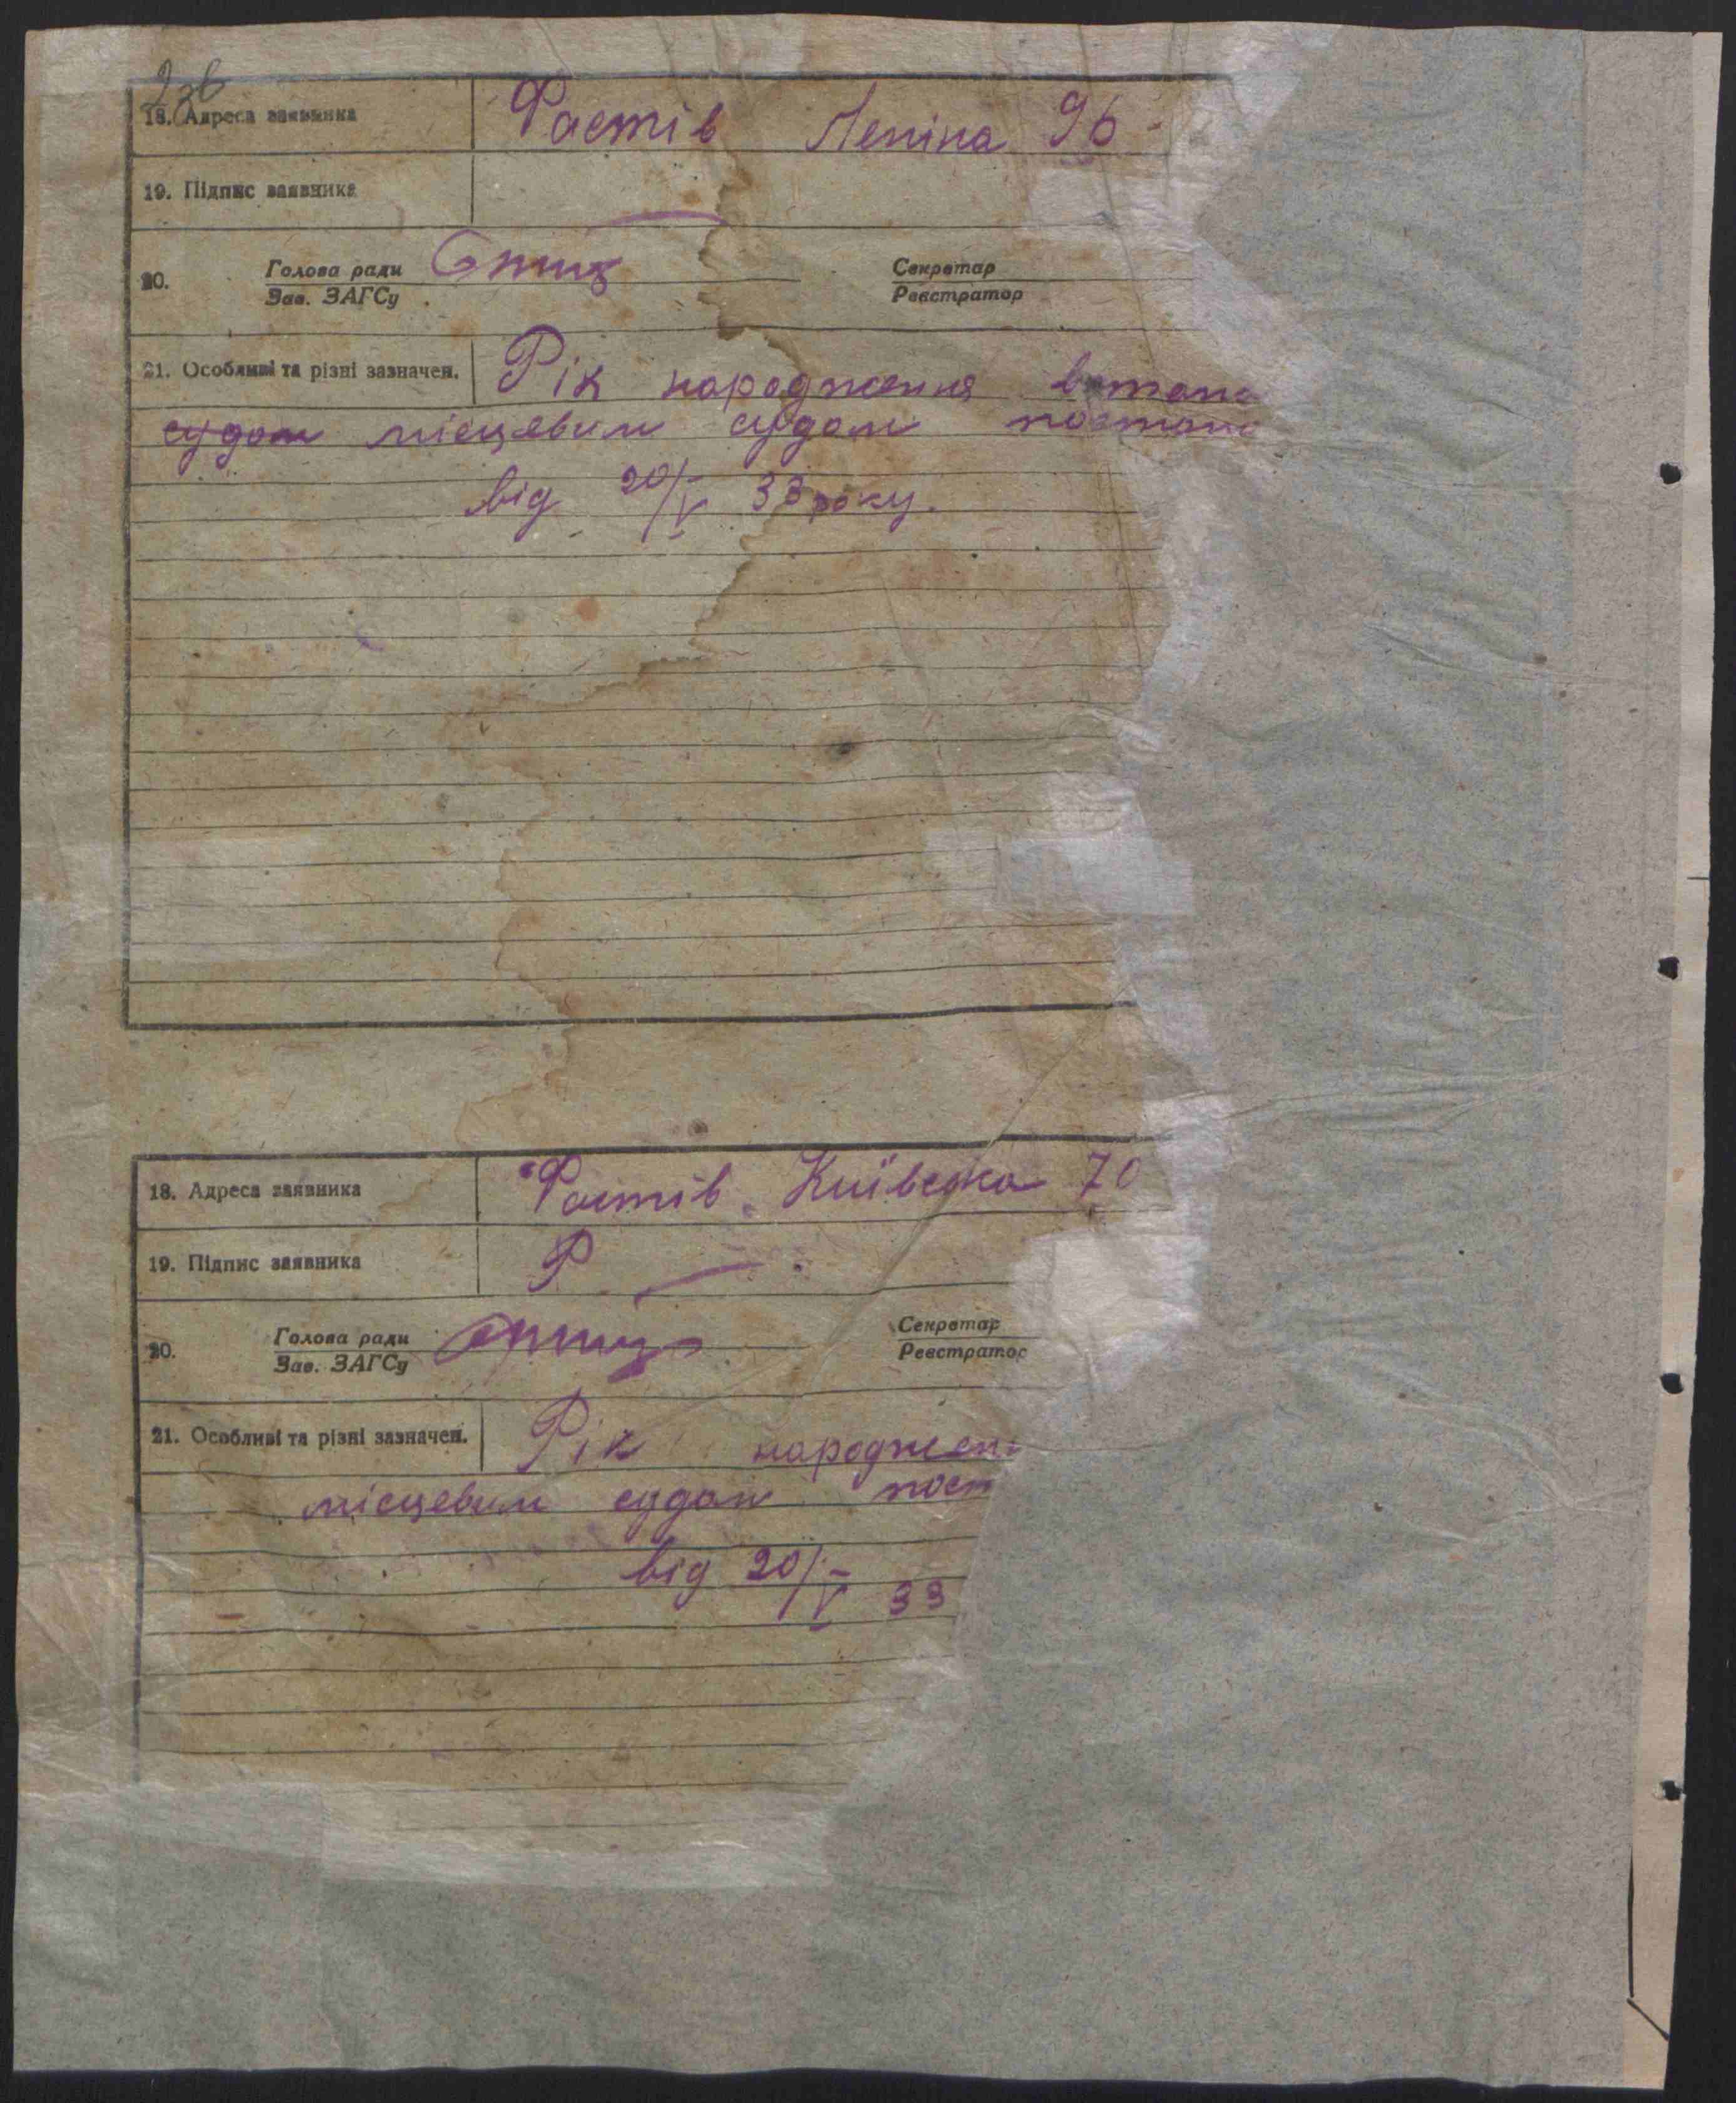 2зв
18. Адреса заявника Фастів Леніна 96
19. Підпис заявника
20. Голова ради Секретар
Зав. ЗАГСу Реєстратор
21. Особливі та різні зазначен. Рік народження встано
судом місцевим судом постано
від 20/V 33 року.
18. Адреса заявника Фастів Київська 70
19. Підпис заявника Р
20. Голова ради Секретар
Зав. ЗАГСу Реєстратор
21. Особливі та різні зазначен. Рік народжен
місцевим судом пост
від 20/V 33